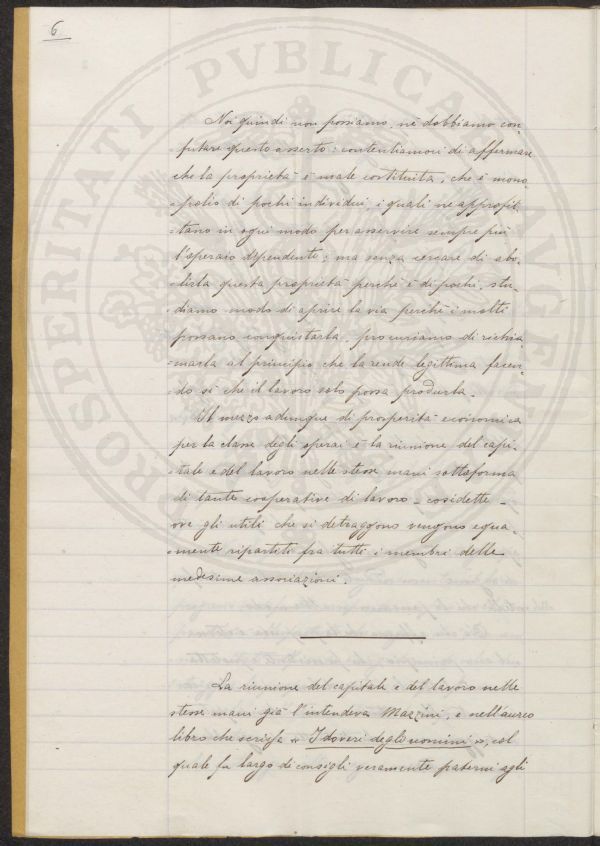 6
PROSPERITATI PVBLICAE AVGENDAE
Noi quindi non possiamo, nè dobbiamo con-
futare questo asserto: contentiamoci di affermare
che la proprietà è male costituita, che è mono-
=polio di pochi individui, i quali ne approfit-
=tano in ogni modo per asservire sempre più
l'operaio dipendente; ma senza cercare di abo-
=lirla questa proprietà perchè è di pochi, stu-
diamo modo di aprire la via perchè i molti
possano conquistarla, procuriamo di richia-
=marla al principio che la rende legittima facen-
do sì che il lavoro solo possa produrla.
Il mezzo adunque di prosperità economica
per la classe degli operai è la riunione del capi-
=tale e del lavoro nelle stesse mani sottoforma
di tante cooperative di lavoro - cosidette -
ove gli utili che si detraggono vengono equa-
=mente ripartiti fra tutti i membri delle
medesime associazioni.
La riunione del capitale e del lavoro nelle
stesse mani già l'intendeva Mazzini, e nell'aureo
libro che scrisse « I doveri degli uomini », col
quale fu largo di consigli veramente paterni agli